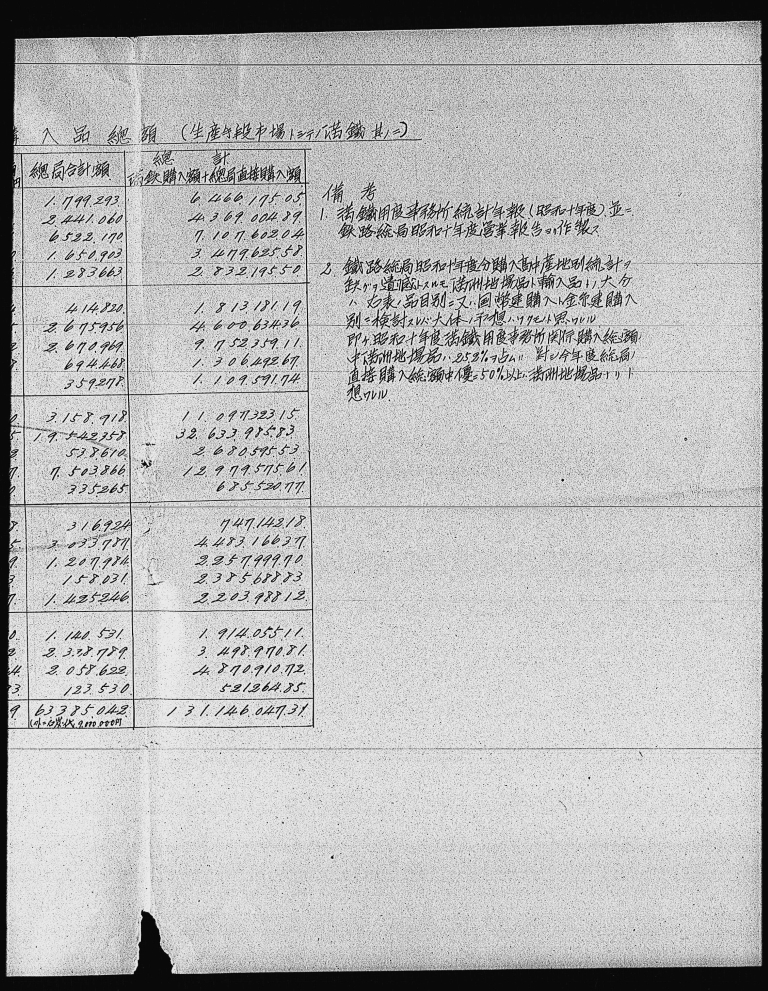 入品總額 (生産手段市場トシテノ満鐵 其ノ二)
總局合計額 總計
満鉄購入額+總局直接購入額
1.799.293. 6.466.175.05.
2.441.060. 4.369.004.89
6.522.170 7.107.602.04
1.650.903 3.479.625.58
1.283.663 2.832.195.50
414.820. 1.813.181.19
2.675.956 4.600.634.36
2.670.969. 9.752.359.11.
694.468 1.306.492.67
359.278 1.109.591.74
3.158.918 11.097.323.15.
19.542.358 32.633.985.83.
538.610. 2.680.595.53
7.503.866 12.979.575.61
335.265 685.520.77
316.924 747.142.18
3.033.787. 4.483.166.37
1.207.984 2.257.999.70
158.031. 2.385.688.83
1.425.246 2.203.988.12
1.140.531. 1.914.055.11.
2.338.789 3.498.970.81
2.058.622 4.870.910.72
123.530 521.264.85
63.385.042 131.146.047.31
備考
1. 満鐵用度事務所統計年報(昭和十年度)並ニ
鉄路總局昭和十年度營業報告ヨリ作製ス
2. 鐵路總局昭和十年度分購入高中産地別統計ヲ
欠クヲ遺憾トスルモ満洲地場品ト輸入品トノ大分
ハ右表ノ品目別ニ又ハ国幣建購入ト金建購入
別ニ検討スレバ大体ノ予想ハツクモノト思ハレル
即チ昭和十年度満鐵用度事務所関係購入總額
中満洲地場品ハ25.2%ヲ占ム 対シ今年度総局ノ
直接購入總額中優ニ50%以上ハ満洲地場品ナリト
想ハレル